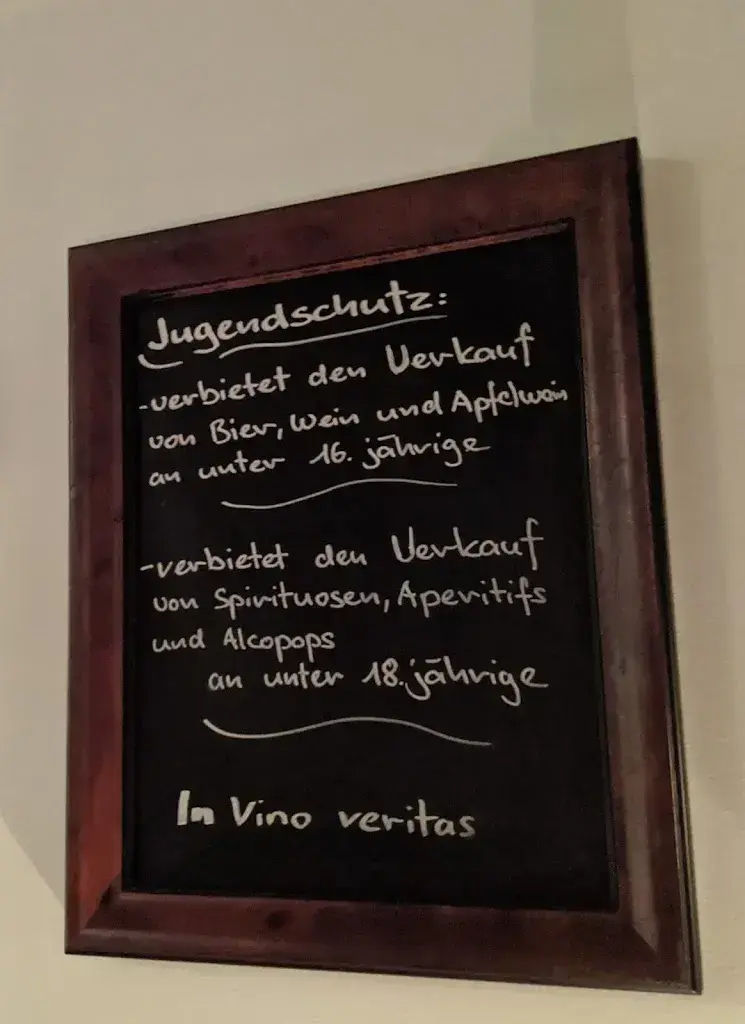 Jugendschutz:
-verbietet den Verkauf
von Bier, Wein und Apfelwein
an unter 16. jährige
-verbietet den Verkauf
von Spirituosen, Aperitifs
und Alcopops
an unter 18. jährige
In Vino veritas